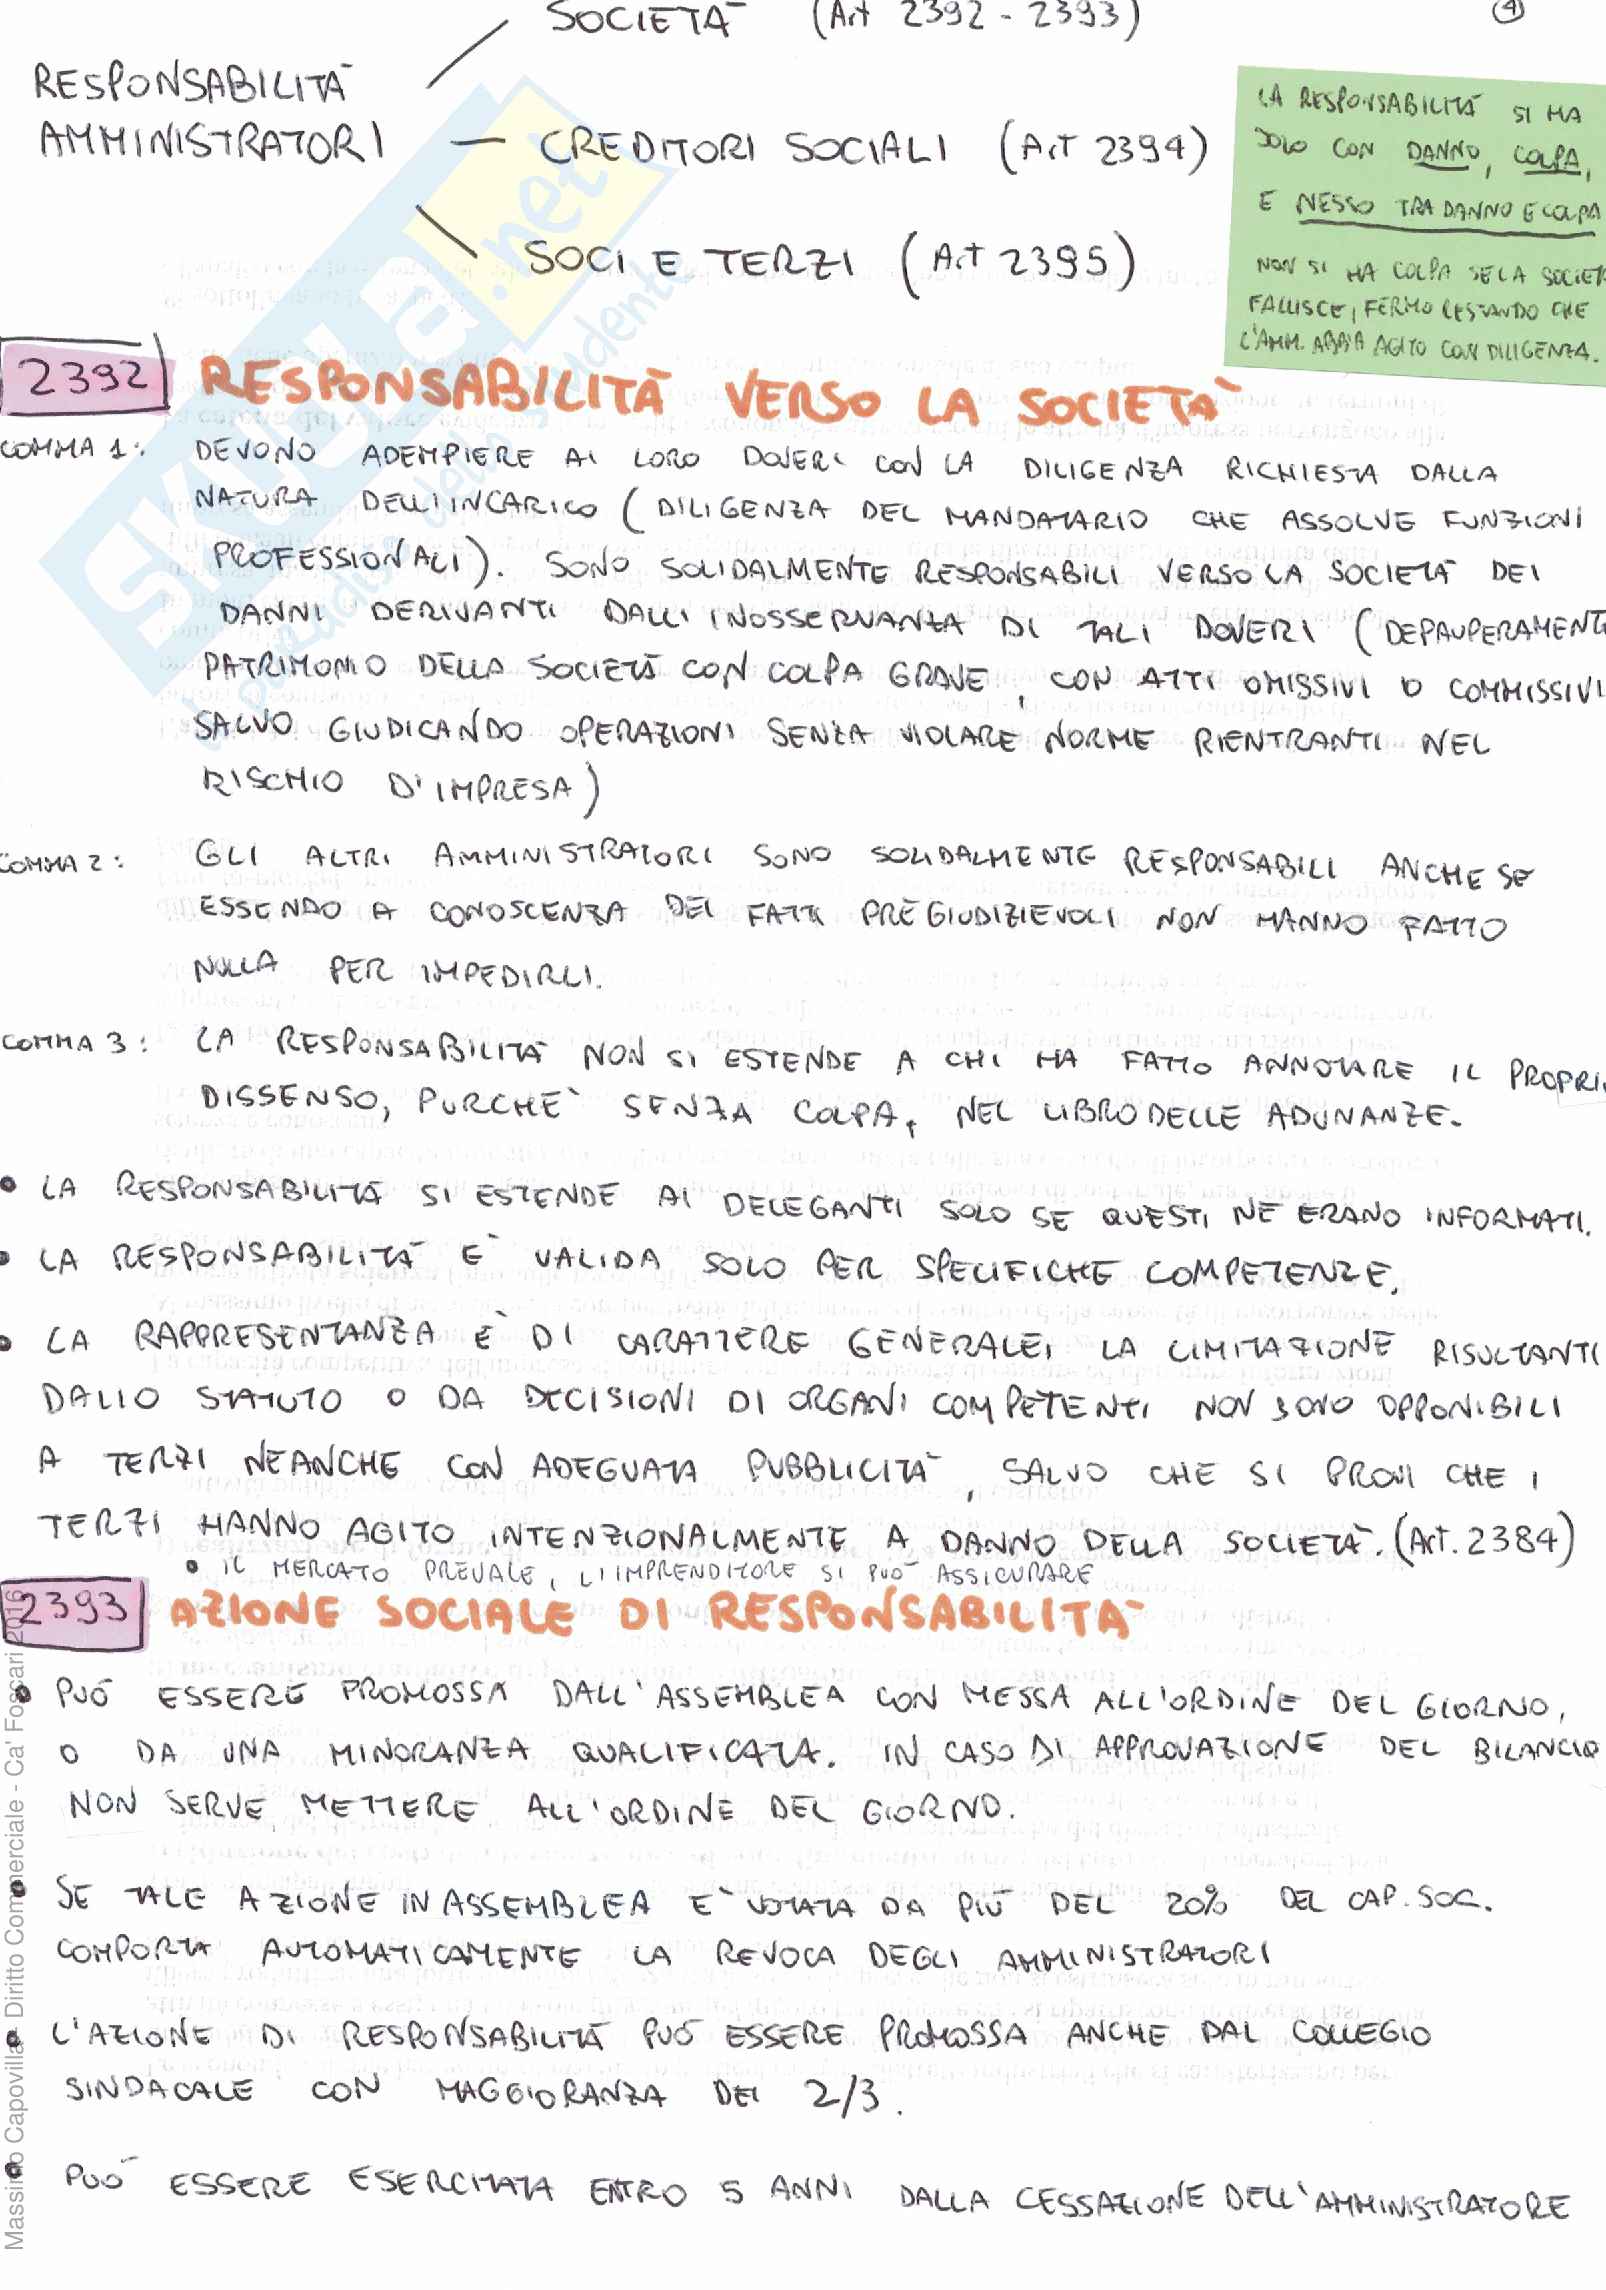 SOCIETÀ (Art 2392 - 2393)
4
RESPONSABILITÀ
AMMINISTRATORI
CREDITORI SOCIALI (Art 2394)
SOCI E TERZI (Art 2395)
LA RESPONSABILITÀ SI HA
SOLO CON DANNO, COLPA,
E NESSO TRA DANNO E COLPA
NON SI HA COLPA SE LA SOCIETÀ
FALLISCE, FERMO RESTANDO CHE
L'AMM. ABBIA AGITO CON DILIGENZA.
2392 RESPONSABILITÀ VERSO LA SOCIETÀ
COMMA 1: DEVONO ADEMPIERE AI LORO DOVERI CON LA DILIGENZA RICHIESTA DALLA
NATURA DELL'INCARICO (DILIGENZA DEL MANDATARIO CHE ASSOLVE FUNZIONI
PROFESSIONALI). SONO SOLIDALMENTE RESPONSABILI VERSO LA SOCIETÀ DEI
DANNI DERIVANTI DALL'INOSSERVANZA DI TALI DOVERI (DEPAUPERAMENTO
PATRIMONIO DELLA SOCIETÀ CON COLPA GRAVE, CON ATTI OMISSIVI O COMMISSIVI
SALVO GIUDICANDO OPERAZIONI SENZA VIOLARE NORME RIENTRANTI NEL
RISCHIO D'IMPRESA)
COMMA 2: GLI ALTRI AMMINISTRATORI SONO SOLIDALMENTE RESPONSABILI ANCHE SE
ESSENDO A CONOSCENZA DEI FATTI PREGIUDIZIEVOLI NON HANNO FATTO
NULLA PER IMPEDIRLI.
COMMA 3: LA RESPONSABILITÀ NON SI ESTENDE A CHI HA FATTO ANNOTARE IL PROPRIO
DISSENSO, PURCHE' SENZA COLPA, NEL LIBRO DELLE ADUNANZE.
• LA RESPONSABILITÀ SI ESTENDE AI DELEGANTI SOLO SE QUESTI NE ERANO INFORMATI.
• LA RESPONSABILITÀ E' VALIDA SOLO PER SPECIFICHE COMPETENZE.
• LA RAPPRESENTANZA E' DI CARATTERE GENERALE, LA LIMITAZIONE RISULTANTI
DALLO STATUTO O DA DECISIONI DI ORGANI COMPETENTI NON SONO OPPONIBILI
A TERZI NEANCHE CON ADEGUATA PUBBLICITÀ, SALVO CHE SI PROVI CHE I
TERZI HANNO AGITO INTENZIONALMENTE A DANNO DELLA SOCIETÀ. (Art. 2384)
• IL MERCATO PREVALE, L'IMPRENDITORE SI PUÒ ASSICURARE
2393 AZIONE SOCIALE DI RESPONSABILITÀ
• PUÓ ESSERE PROMOSSA DALL'ASSEMBLEA CON MESSA ALL'ORDINE DEL GIORNO,
O DA UNA MINORANZA QUALIFICATA. IN CASO DI APPROVAZIONE DEL BILANCIO
NON SERVE METTERE ALL'ORDINE DEL GIORNO.
• SE TALE AZIONE IN ASSEMBLEA E' VOTATA DA PIÙ DEL 20% DEL CAP. SOC.
COMPORTA AUTOMATICAMENTE LA REVOCA DEGLI AMMINISTRATORI
• L'AZIONE DI RESPONSABILITÀ PUÓ ESSERE PROMOSSA ANCHE DAL COLLEGIO
SINDACALE CON MAGGIORANZA DEI 2/3.
• PUÓ ESSERE ESERCITATA ENTRO 5 ANNI DALLA CESSAZIONE DELL'AMMINISTRATORE
Massimo Capovilla - Diritto Commerciale - Ca' Foscari 2016
SKUOLA.net